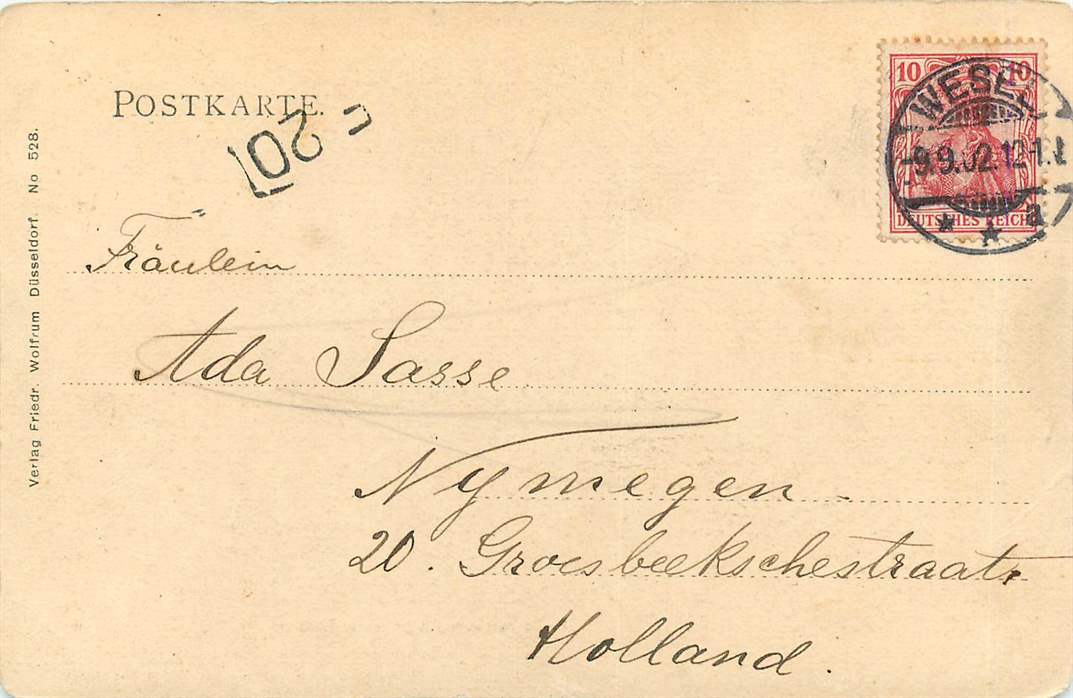 POSTKARTE.
10 10
DEUTSCHES REICH
WESEL
-9.9.02.12-1.
a
201
Fräulein
Ada Sasse
Nymegen
20. Groesbeekschestraat.
Holland.
Verlag Friedr. Wolfrum Düsseldorf. No 528.